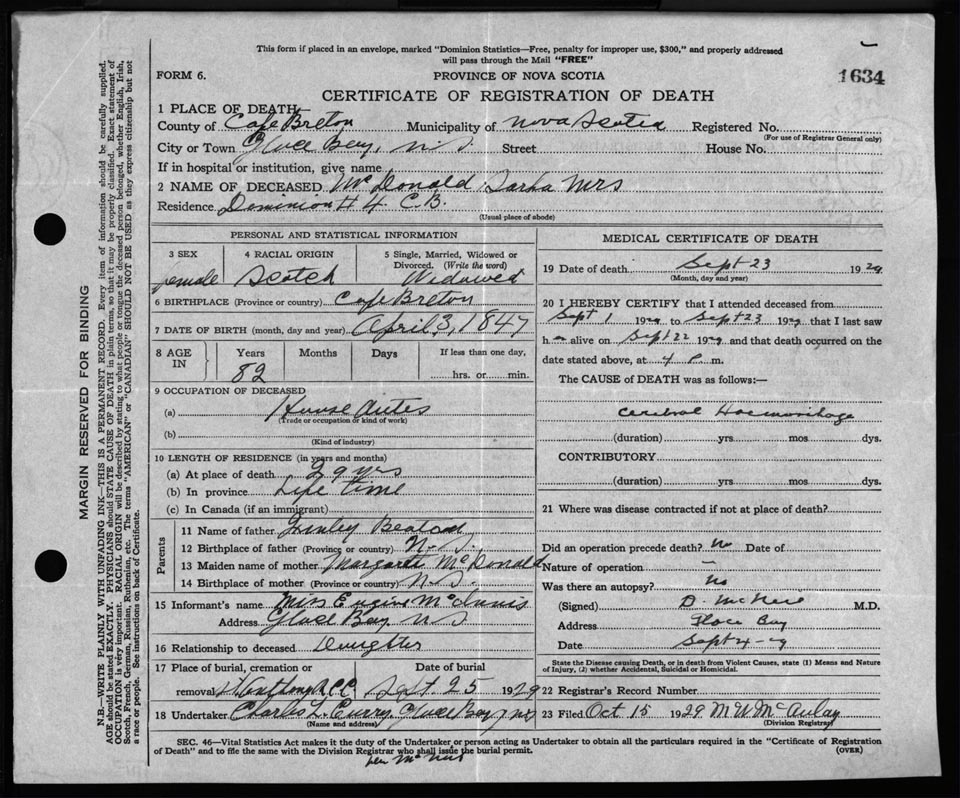 This form if placed in an envelope, marked "Dominion Statistics—Free, penalty for improper use, $300," and properly addressed
will pass through the Mail "FREE"
FORM 6.
PROVINCE OF NOVA SCOTIA
1634
CERTIFICATE OF REGISTRATION OF DEATH
1 PLACE OF DEATH
County of Cape Breton Municipality of Nova Scotia Registered No.
(For use of Registrar General only)
City or Town Glace Bay, N.S. Street House No.
If in hospital or institution, give name
2 NAME OF DECEASED McDonald Sarha Mrs
Residence Dominion # 4 C.B.
(Usual place of abode)
PERSONAL AND STATISTICAL INFORMATION
3 SEX female
4 RACIAL ORIGIN Scotch
5 Single, Married, Widowed or Divorced. (Write the word) Widowed
6 BIRTHPLACE (Province or country) Cape Breton
7 DATE OF BIRTH (month, day and year) April, 3, 1847
8 AGE IN Years 82 Months Days If less than one day, hrs. or min.
9 OCCUPATION OF DECEASED
(a) House Duties
(Trade or occupation or kind of work)
(b)
(Kind of industry)
10 LENGTH OF RESIDENCE (in years and months)
(a) At place of death 29 yrs
(b) In province Life time
(c) In Canada (if an immigrant)
Parents
11 Name of father Finley Beaton
12 Birthplace of father (Province or country) N.S.
13 Maiden name of mother Margaret McDonald
14 Birthplace of mother (Province or country) N.S.
15 Informant's name Miss McInnis
Address Glace Bay N.S
16 Relationship to deceased Daughter
17 Place of burial, cremation or Date of burial
removal St Anthony R.C.C. Sept. 25 1929
18 Undertaker Charles L. Curry, Glace Bay, N.S
(Name and address)
MEDICAL CERTIFICATE OF DEATH
19 Date of death Sept 23 1929
(Month, day and year)
20 I HEREBY CERTIFY that I attended deceased from
Sept 1 1929 to Sept 23 1929 that I last saw
h alive on Sept 22 1929 and that death occurred on the
date stated above, at 4 P. m.
The CAUSE of DEATH was as follows:—
Cerebral Haemorrhage
(duration) yrs mos dys.
CONTRIBUTORY
(duration) yrs. mos. dys.
21 Where was disease contracted if not at place of death?
Did an operation precede death? No Date of
Nature of operation —
Was there an autopsy? No
(Signed) D. McNeil M.D.
Address Glace Bay
Date Sept 24-29
State the Disease causing Death, or in death from Violent Causes, state (1) Means and Nature
of Injury, (2) whether Accidental, Suicidal or Homicidal.
22 Registrar's Record Number
23 Filed Oct 15 1929 M W McAulay
(Division Registrar)
SEC. 46—Vital Statistics Act makes it the duty of the Undertaker or person acting as Undertaker to obtain all the particulars required in the "Certificate of Registration
of Death" and to file the same with the Division Registrar who shall issue the burial permit.
(OVER)
MARGIN RESERVED FOR BINDING
N.B.—WRITE PLAINLY WITH UNFADING INK—THIS IS A PERMANENT RECORD. Every item of information should be carefully supplied.
AGE should be stated EXACTLY. PHYSICIANS should STATE CAUSE OF DEATH in plain terms, so that it may be properly classified. Exact statement of
OCCUPATION is very important. RACIAL ORIGIN will be described by stating to what people or tongue the deceased person belonged, whether English, Irish,
Scotch, French, German, Russian, Ruthenian, etc. The terms "AMERICAN" or "CANADIAN" SHOULD NOT BE USED as they express citizenship but not
a race or people. See instructions on back of Certificate.